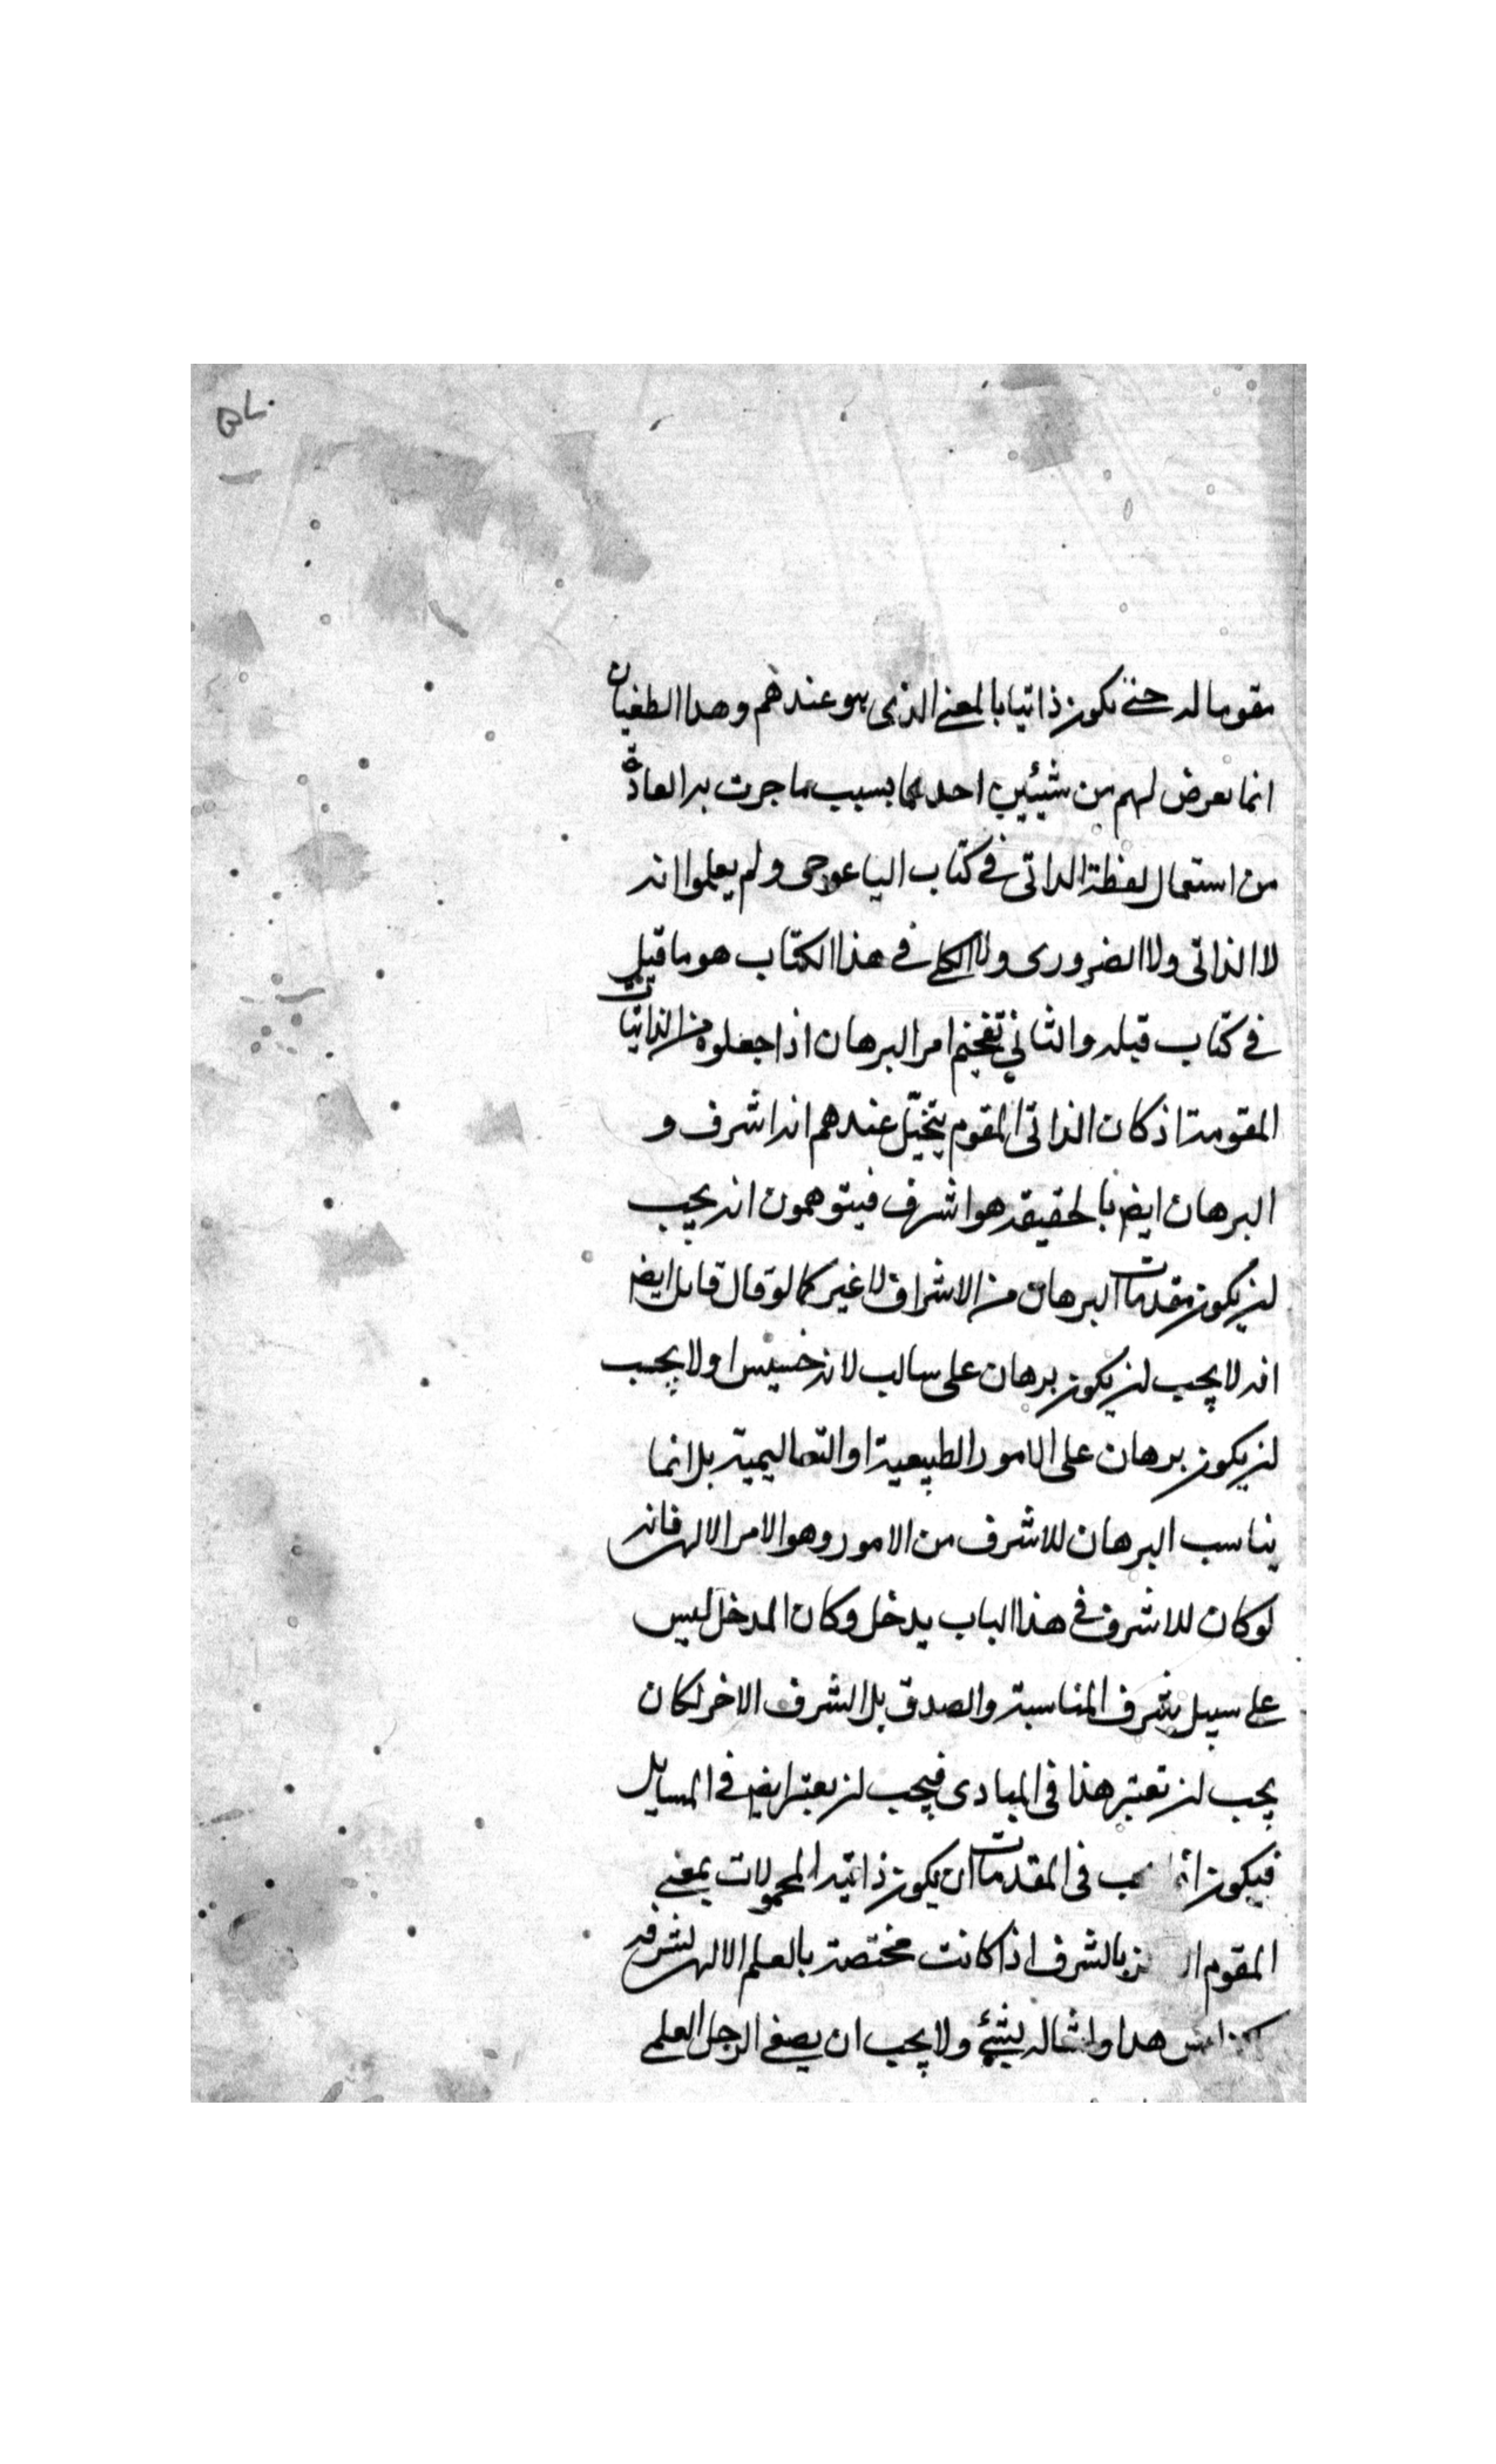 BL.
مقوما له حتى يكون ذاتيا بالمعنى الذى هو عندهم وهدا الطغيان
انما يعرض لهم من شيئين احدهما بسبب ما جرت به العادة
من استعمال لفظة الداتى فى كتاب ايساغوجى ولم يعلموا انه
لا الذاتى ولا الضرورى ولا الكلى فى هذا الكتاب هو ما قيل
فى كتاب قبله والثانى تفخيم امر البرهان اذا جعلوه من الذاتيات
المقومة اذ كان الذاتى المقوم يتخيّل عندهم انه اشرف و
البرهان ايض بالحقيقة هو اشرف فيتوهمون انه يجب
ان يكون مقدمات البرهان من الاشراف لا غير كما لو قال قائل ايض
انه لا يجب ان يكون برهان على سالب لانه خسيس او لا يجب
ان يكون برهان على الامور الطبيعية او التعاليمية بل انما
يناسب البرهان للاشرف من الامور وهو الامر الالهى فانه
لو كان للاشرف فى هذا الباب يدخل وكان المدخل ليس
على سبيل شرف المناسبة والصدق بل الشرف الاخر لكان
يجب ان تعتبر هذا فى المبادى فيجب ان يعتبر ايض فى المسايل
فيكون فى المقدمات ان يكون ذاتية المحمولات بمعنى
المقوم بالشرف اذا كانت مختصة بالعلم الالهى لشرفه
هدا وامثاله بشئ ولا يجب ان يصغى الرجل العلمى